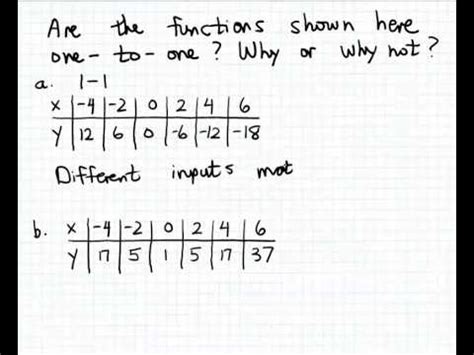 Are the functions shown here
one-to-one? Why or why not?
a. 1-1
x | -4 | -2 | 0 | 2 | 4 | 6
y | 12 | 6 | 0 | -6 | -12 | -18
Different inputs mat
b. x | -4 | -2 | 0 | 2 | 4 | 6
y | 17 | 5 | 1 | 5 | 17 | 37